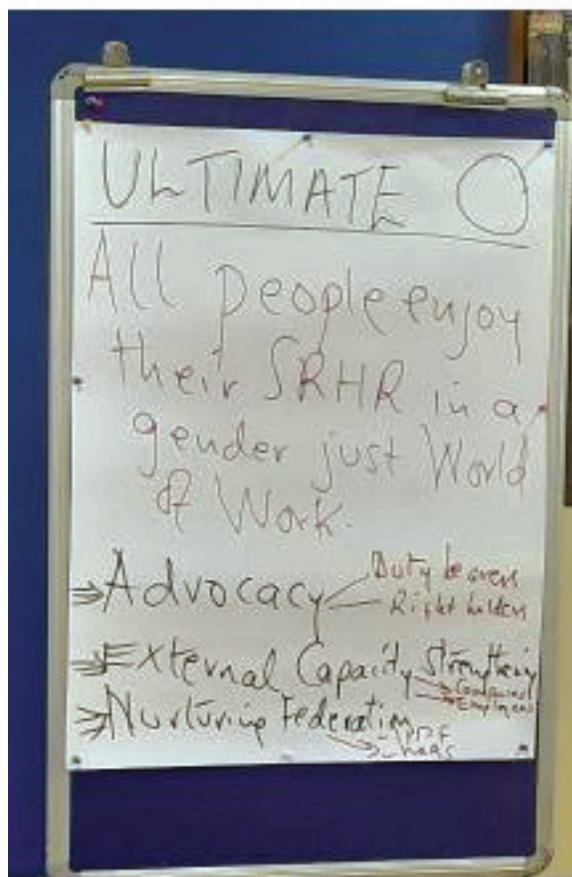 ULTIMATE O
All people enjoy
their SRHR in a
gender just World
of Work.
⇒ Advocacy
Duty bearers
Right holders
⇒ External Capacity Strengthening
Employers
⇒ Nurturing Federation